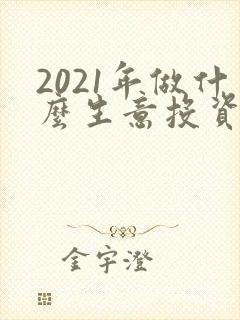 2021年做什
麼生意投資
金宇澄